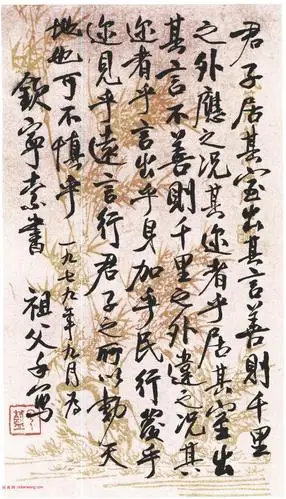 君子居其室出其言善則千里
之外應之况其迩者乎居其室出
其言不善則千里之外違之况其
迩者乎言出乎身加乎民行發乎
迩見乎遠言行君子之所以動天
地也可不慎乎 一九七九年九月為
欽寧索書 祖父